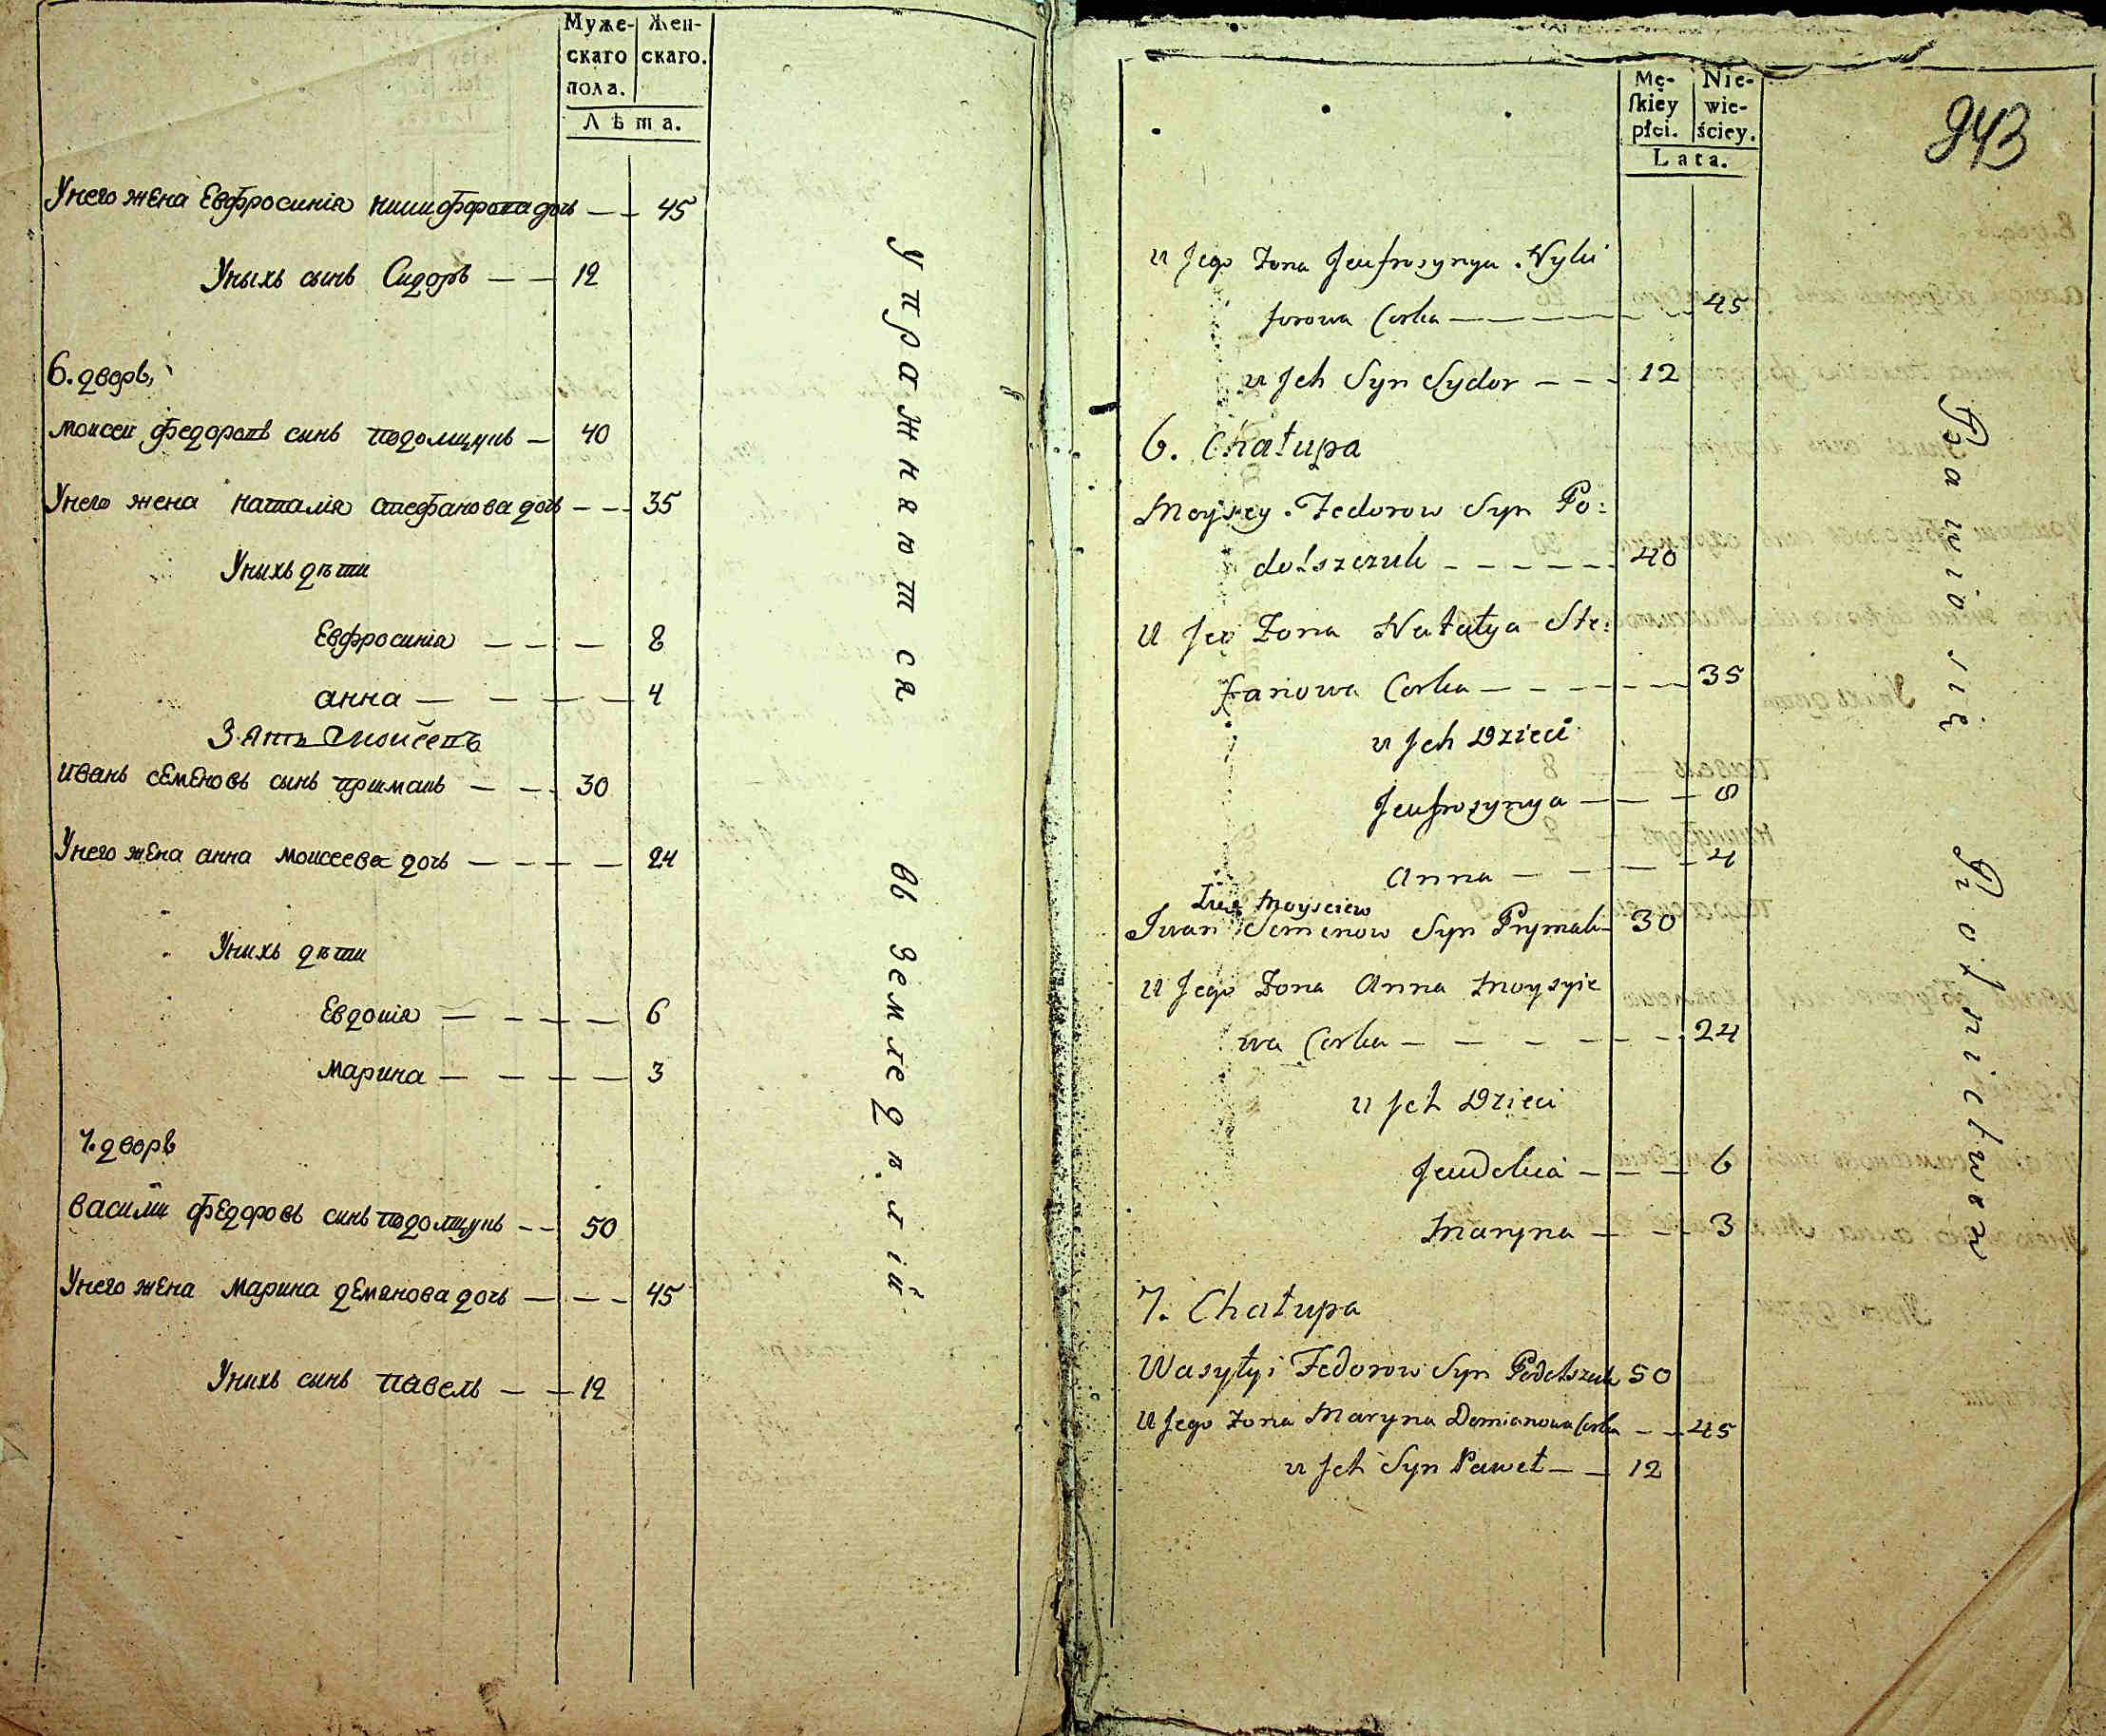 Муже- Жен-
скаго скаго.
пола.
Лѣта.
Унего жена Евфросинія никифорова дочь — — 45
Уныхъ сынъ Сидоръ — — 12
6. дворъ,
моисеи федоровъ сынъ подолщукъ — 40
Унего жена наталія стефанова дочь — — 35
Унихъ дѣти
Евфросинія — — — 8
анна — — — — 4
Зять моисеевъ
иванъ семеновъ сынъ примакъ — — 30
Унего жена анна моисеева дочь — — — — 24
Унихъ дѣти
Евдокія — — — — 6
марина — — — — 3
7. дворъ
василий федоровъ синъ подолщукъ — — 50
Унего жена марина демянова дочь — — — 45
Унихъ сынъ павелъ — — 12
Упражняются въ земледѣлій
Mę- Nie-
ſkiey wie-
płci. ściey.
Lata.
943
u Jego Żona Jeufrosynya Nyki
forowa Corka — — — 45
u Jch Syn Sydor — — — 12
6. Chałupa
Moysey Fedorow Syn Po:
dolszczuk — — — — — — 40
u Jeo Żona Natalya Ste:
fanowa Corka — — — — — — 35
u Jch Dzieci
Jeufrosynya — — — 8
Anna — — — — 4
Zięć Moysciew
Jwan Semenow Syn Prymak — 30
u Jego Żona Anna Moysyie
wa Corka — — — — — — 24
u Jch Dzieci
Jeudokia — — — 6
Maryna — — — 3
7. Chałupa
Wasyłyi Fedorow Syn Podolszczuk 50
u Jego Żona Maryna Demianowa Corka — — 45
u Jch Syn Paweł — — 12
Bawio się Rolnictwem